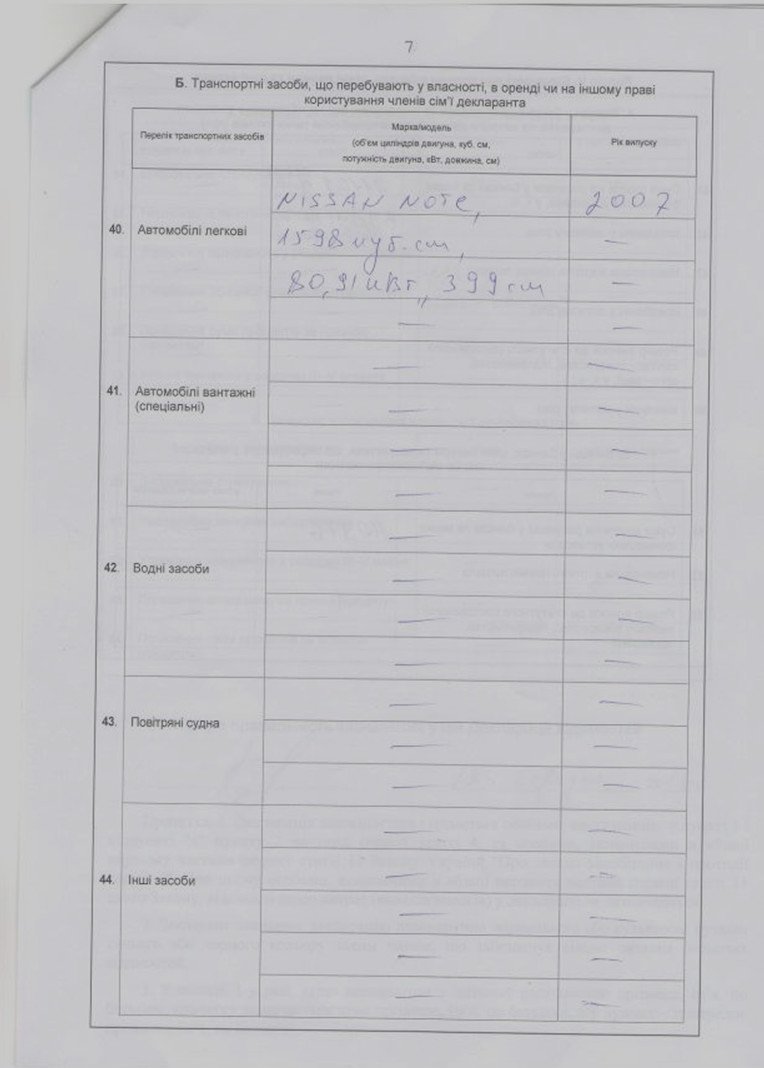 7
Б. Транспортні засоби, що перебувають у власності, в оренді чи на іншому праві
користування членів сім'ї декларанта
Перелік транспортних засобів
Марка/модель
(об'єм циліндрів двигуна, куб. см,
потужність двигуна, кВт, довжина, см)
Рік випуску
40. Автомобілі легкові
NISSAN NOTE, 2007
1598 куб. см, —
80,91 кВт, 399 см —
— —
41. Автомобілі вантажні
(спеціальні)
— —
— —
— —
— —
42. Водні засоби
— —
— —
— —
— —
43. Повітряні судна
— —
— —
— —
44. Інші засоби
— —
— —
— —
— —
— —